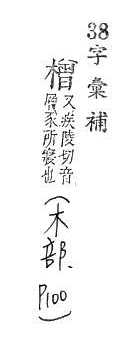 38字彙補
橧
又疾陵切音
層豕所寢也
(木部. P100)